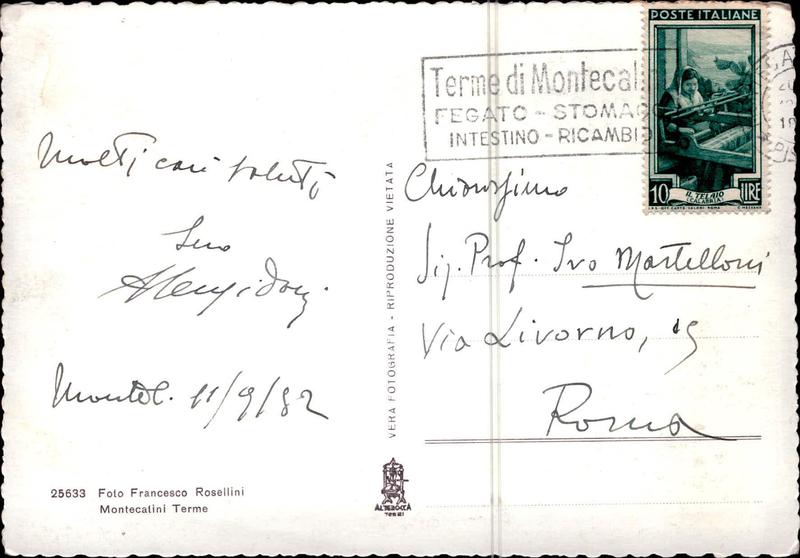 Molti cari saluti
Suo
Montec. 11/9/52
25633 Foto Francesco Rosellini
Montecatini Terme
VERA FOTOGRAFIA - RIPRODUZIONE VIETATA
ALTEROCCA
TERNI
Terme di Montecatin
FEGATO - STOMAC
INTESTINO - RICAMBIO
POSTE ITALIANE
10 LIRE
IL TELAIO
(CALABRIA)
Chiarissimo
Sig. Prof. Ivo Martelloni
Via Livorno, 15
Roma